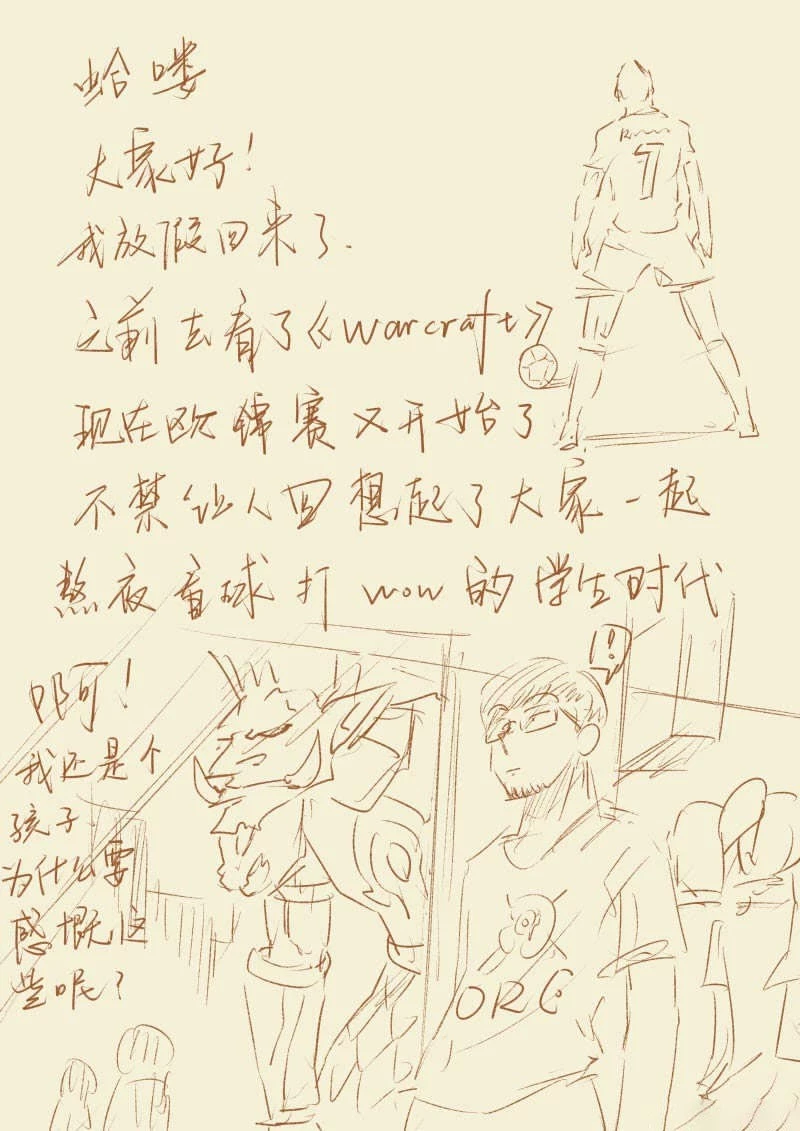 哈喽
大家好!
我放假回来了.
之前去看了《warcraft》
现在欧锦赛又开始了
不禁让人回想起了大家一起
熬夜看球打wow的学生时代
啊!
我还是个
孩子
为什么要
感慨这
些呢?
7
!
ORC